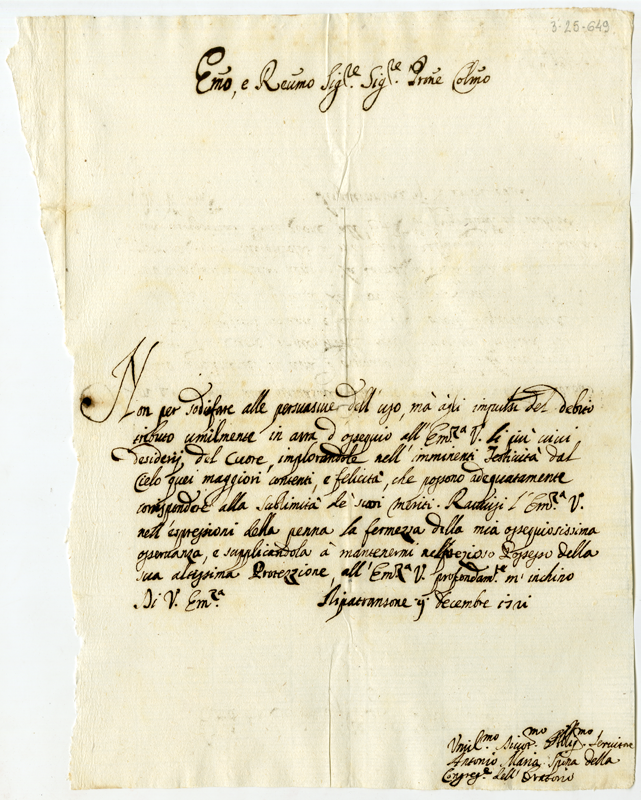 3-25-649
Emo, e Reumo Sigre. Sigre. Prone Colmo
Non per sodisfare alle persuasive dell'uso, mà agli impulsi del debito
tributo umilmente in arra d'ossequio all'Emza V. li più vivi
desiderij del Cuore, implorandole nell'imminenti Festività dal
Cielo quei maggiori contenti, e felicità, che possono adequatamente
corrispondere alla sublimità de suoi meriti. Racchiusi l'Emza V.
nell'espressioni della penna la fermezza della mia ossequiosissima
osservanza, e supplicandola à mantenermi nel prezioso Possesso della
sua altissima Protezzione, all'Emza V. profondamte m'inchino
Di V. Emza Ripatransone 9 decembre 1721
Umilmo Divormo Servitore
Antonio Maria Spina della
Congregne dell'Oratorio